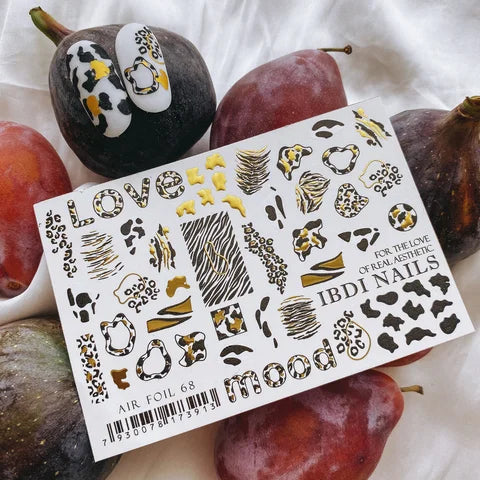 Love
FOR THE LOVE
OF REAL AESTHETIC
IBDI NAILS
mood
AIR FOIL 68
7930078173913